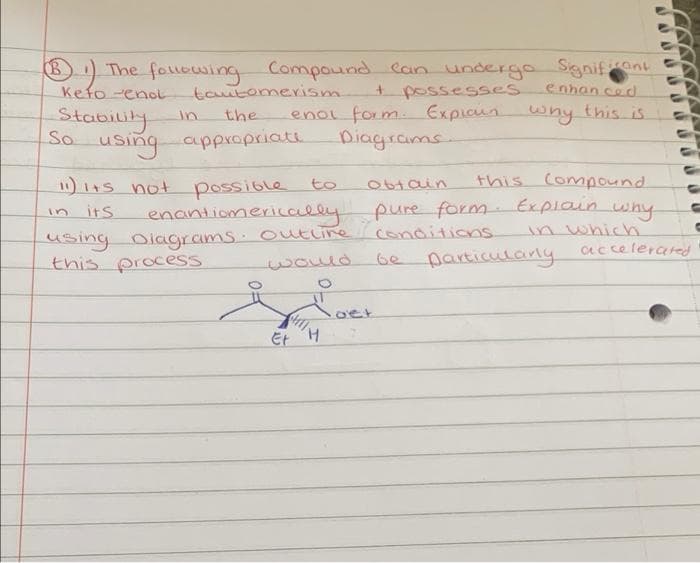 (B) i) The following Compound can undergo Significant
Keto-enol tautomerism + possesses enhanced
Stability in the enol form. Explain why this is
So using appropriate Diagrams.
ii) its not possible to obtain this compound
in its enantiomerically pure form. Explain why
using Diagrams. Outline conditions in which
this process would be Particularly accelerated
O O
OEt
Et H